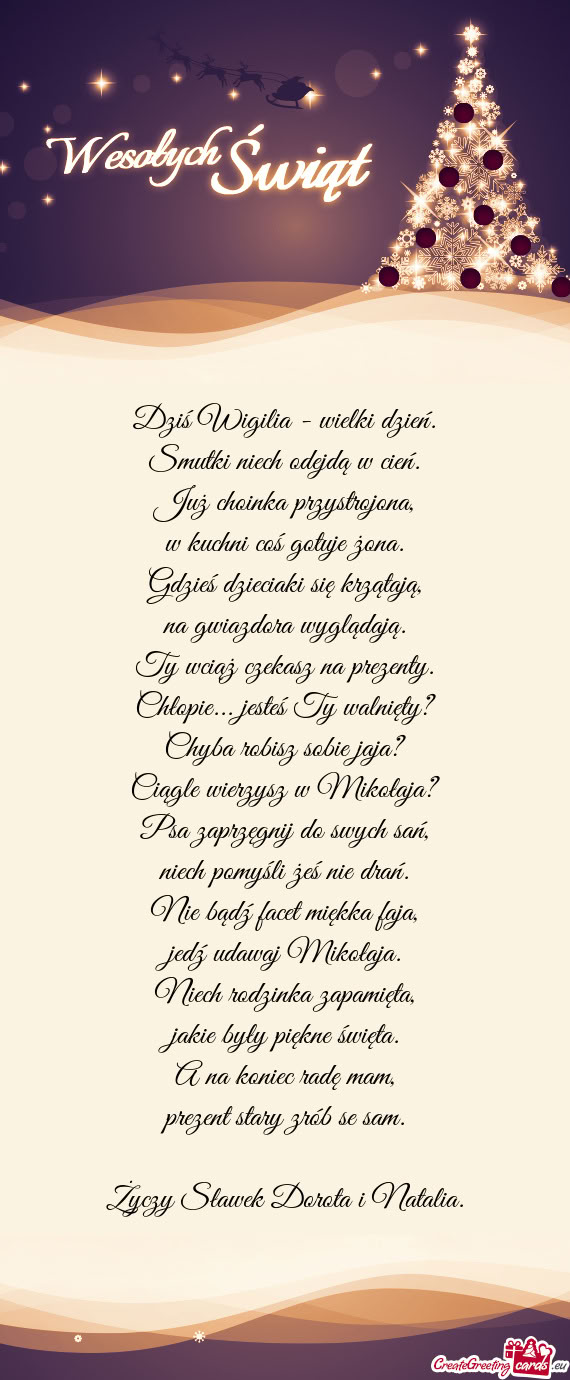 Wesołych Świąt
Dziś Wigilia - wielki dzień.
Smutki niech odejdą w cień.
Już choinka przystrojona,
w kuchni coś gotuje żona.
Gdzieś dzieciaki się krzątają,
na gwiazdora wyglądają.
Ty wciąż czekasz na prezenty.
Chłopie... jesteś Ty walnięty?
Chyba robisz sobie jaja?
Ciągle wierzysz w Mikołaja?
Psa zaprzęgnij do swych sań,
niech pomyśli żeś nie drań.
Nie bądź facet miękka faja,
jedź udawaj Mikołaja.
Niech rodzinka zapamięta,
jakie były piękne święta.
A na koniec radę mam,
prezent stary zrób se sam.
Życzy Sławek Dorota i Natalia.
CreateGreetingcards.eu